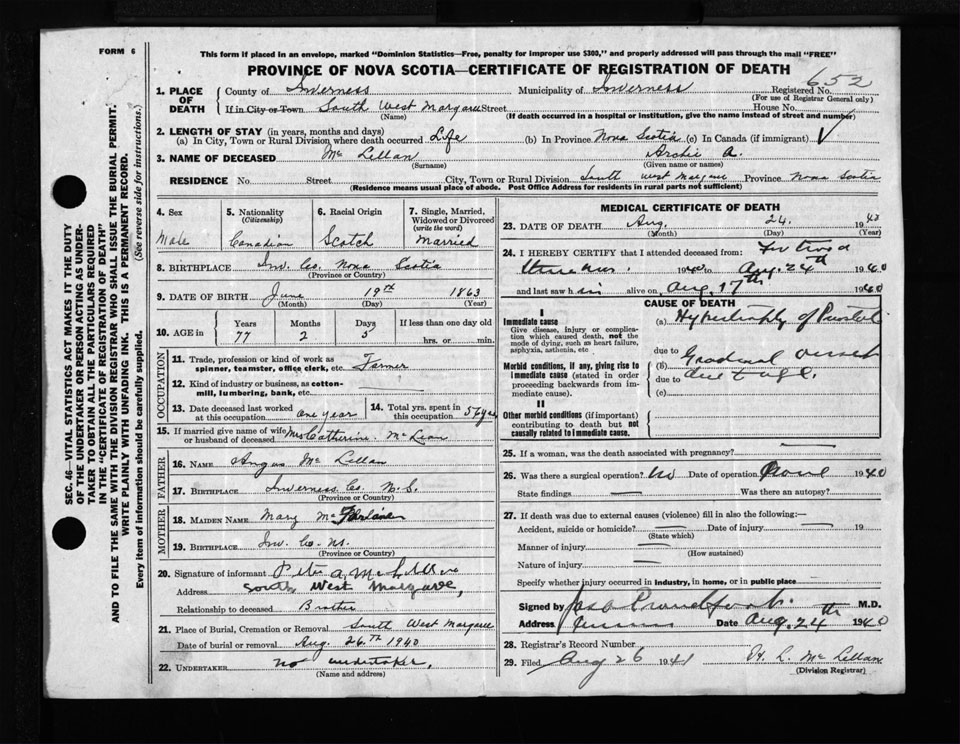 FORM 6
This form if placed in an envelope, marked "Dominion Statistics—Free, penalty for improper use $300," and properly addressed will pass through the mail "FREE"
PROVINCE OF NOVA SCOTIA—CERTIFICATE OF REGISTRATION OF DEATH
652
1. PLACE OF DEATH
County of Inverness Municipality of Inverness Registered No.
(For use of Registrar General only)
If in City or Town South West Margaree Street House No.
(Name) (If death occurred in a hospital or institution, give the name instead of street and number)
2. LENGTH OF STAY (in years, months and days)
(a) In City, Town or Rural Division where death occurred Life (b) In Province Nova Scotia (c) In Canada (if immigrant)
3. NAME OF DECEASED Mc Lellan Archie A.
(Surname) (Given name or names)
RESIDENCE No. Street City, Town or Rural Division South West Margaree Province Nova Scotia
(Residence means usual place of abode. Post Office Address for residents in rural parts not sufficient)
4. Sex Male
5. Nationality (Citizenship) Canadian
6. Racial Origin Scotch
7. Single, Married, Widowed or Divorced (write the word) Married
8. BIRTHPLACE Inv. Co. Nova Scotia
(Province or Country)
9. DATE OF BIRTH June 19th 1863
(Month) (Day) (Year)
10. AGE in Years Months Days If less than one day old
77 2 5 hrs. or min.
OCCUPATION
11. Trade, profession or kind of work as spinner, teamster, office clerk, etc. Farmer
12. Kind of industry or business, as cotton-mill, lumbering, bank, etc.
13. Date deceased last worked at this occupation one year
14. Total yrs. spent in this occupation 57 yrs
15. If married give name of wife or husband of deceased Mrs Catherine McLean
FATHER
16. NAME Angus Mc Lellan
17. BIRTHPLACE Inverness Co. N.S.
(Province or Country)
MOTHER
18. MAIDEN NAME Mary
19. BIRTHPLACE Inv. Co. NS.
(Province or Country)
20. Signature of informant Peter A McLellan
Address South West Margaree,
Relationship to deceased Brother
21. Place of Burial, Cremation or Removal South West Margaree
Date of burial or removal Aug. 26th 1940
22. UNDERTAKER no undertaker,
(Name and address)
MEDICAL CERTIFICATE OF DEATH
23. DATE OF DEATH Aug. 24. 19
(Month) (Day) (Year)
24. I HEREBY CERTIFY that I attended deceased from:
1940 to Aug. 24th 1940
and last saw him alive on Aug. 17th 1940
CAUSE OF DEATH
I
Immediate cause
Give disease, injury or complication which caused death, not the mode of dying, such as heart failure, asphyxia, asthenia, etc
(a) Hypertrophy of Prostate
due to
Morbid conditions, if any, giving rise to immediate cause (stated in order proceeding backwards from immediate cause).
(b)
due to due to age.
(c)
II
Other morbid conditions (if important) contributing to death but not causally related to immediate cause.
25. If a woman, was the death associated with pregnancy?
26. Was there a surgical operation? No Date of operation 1940
State findings Was there an autopsy?
27. If death was due to external causes (violence) fill in also the following:—
Accident, suicide or homicide? Date of injury 19
(State which)
Manner of injury
(How sustained)
Nature of injury
Specify whether injury occurred in industry, in home, or in public place
Signed by M.D.
Address Date Aug. 24th 1940
28. Registrar's Record Number
29. Filed Aug 26 1941 Mc Lellan
(Division Registrar)
SEC. 46—VITAL STATISTICS ACT MAKES IT THE DUTY
OF THE UNDERTAKER OR PERSON ACTING AS UNDER-
TAKER TO OBTAIN ALL THE PARTICULARS REQUIRED
IN THE "CERTIFICATE OF REGISTRATION OF DEATH"
AND TO FILE THE SAME WITH THE DIVISION REGISTRAR WHO SHALL ISSUE THE BURIAL PERMIT.
WRITE PLAINLY WITH UNFADING INK. THIS IS A PERMANENT RECORD.
Every item of information should be carefully supplied. (See reverse side for instructions.)